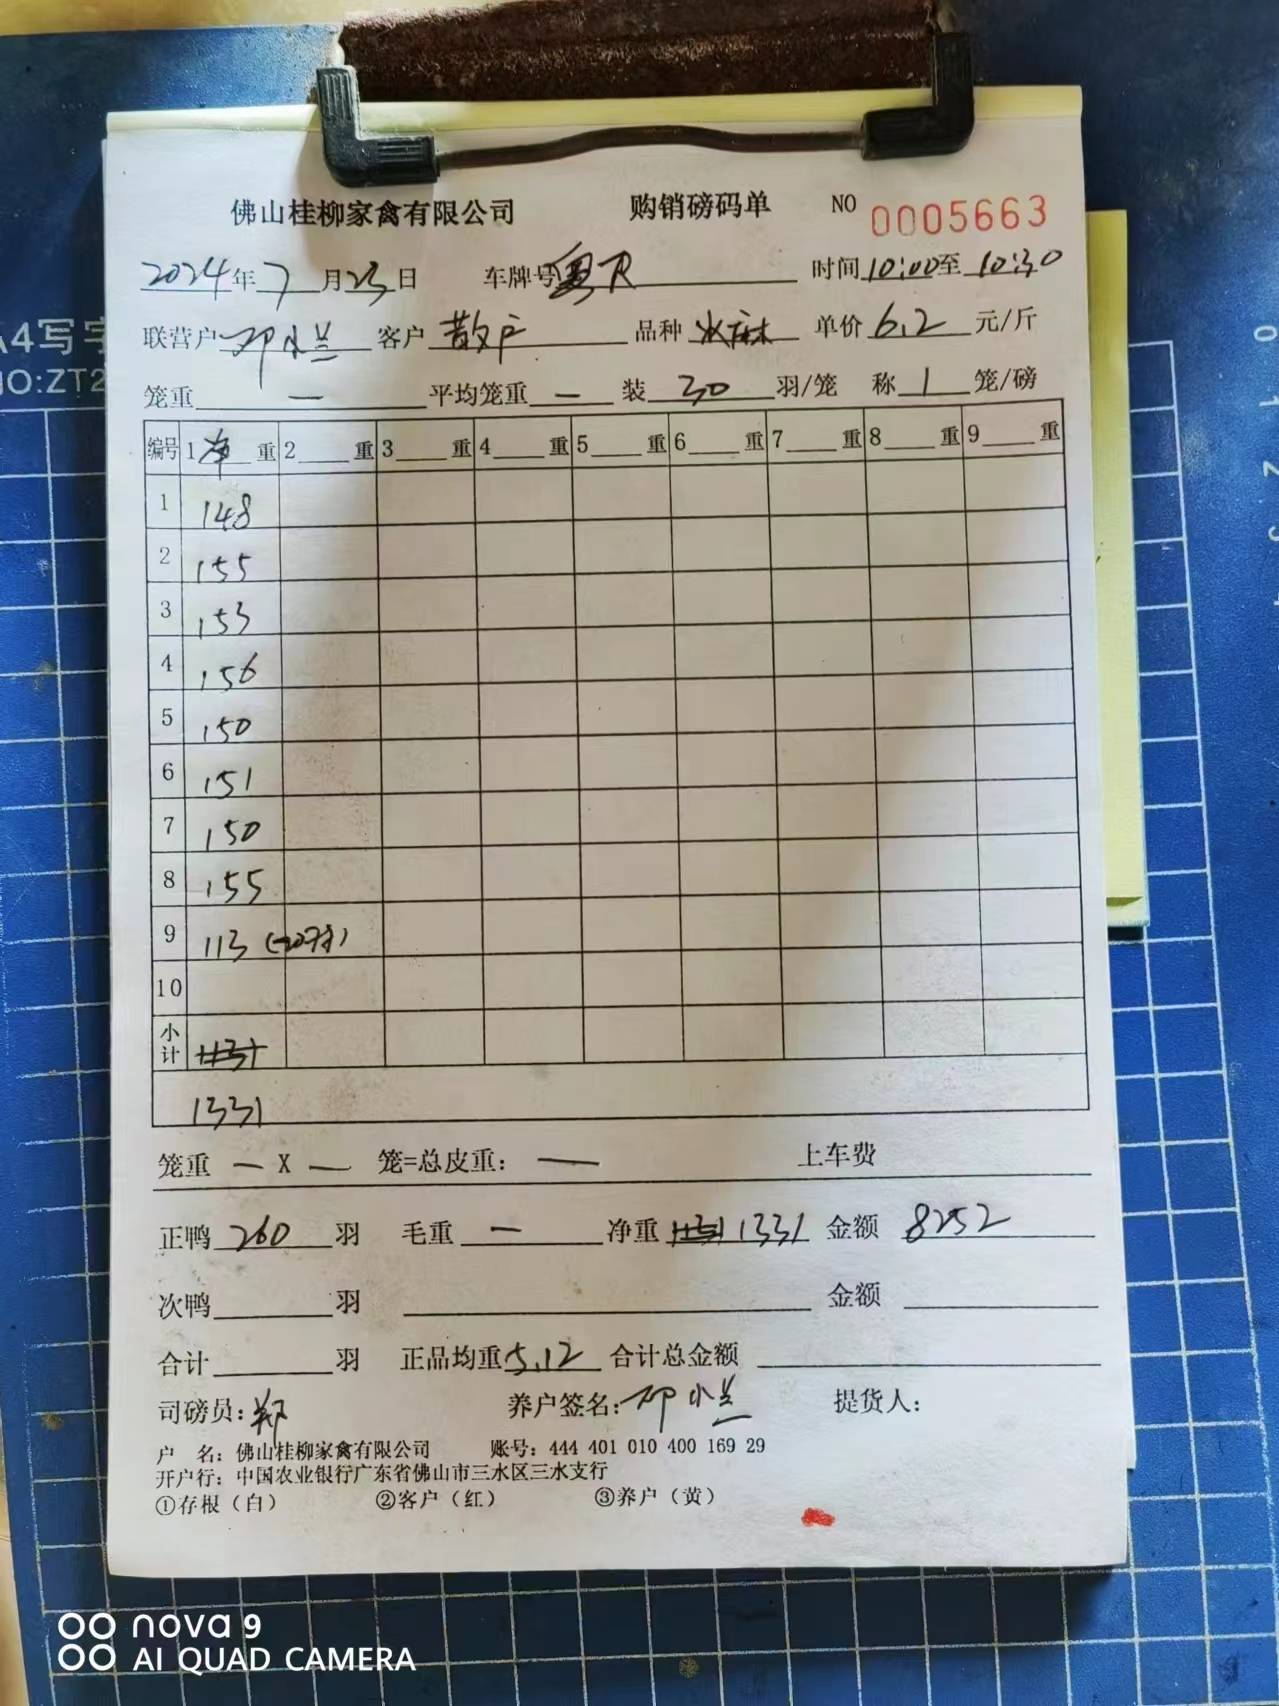 佛山桂柳家禽有限公司 购销磅码单 NO 0005663
2024年7月23日 车牌号粤R 时间10:00至10:30
联营户邓小兰 客户散户 品种水麻 单价6.2元/斤
笼重— 平均笼重— 装30羽/笼 称1笼/磅
编号 1净重 2重 3重 4重 5重 6重 7重 8重 9重
1 148
2 155
3 153
4 156
5 150
6 151
7 150
8 155
9 113
10
小计
1331
笼重—X—笼=总皮重：— 上车费
正鸭260羽 毛重— 净重1331 金额8252
次鸭 羽 金额
合计 羽 正品均重5.12 合计总金额
司磅员：郑 养户签名：邓小兰 提货人：
户 名：佛山桂柳家禽有限公司 账号：444 401 010 400 169 29
开户行：中国农业银行广东省佛山市三水区三水支行
①存根（白） ②客户（红） ③养户（黄）
A4写字
NO:ZT2
0
1
2
3
nova 9
AI QUAD CAMERA